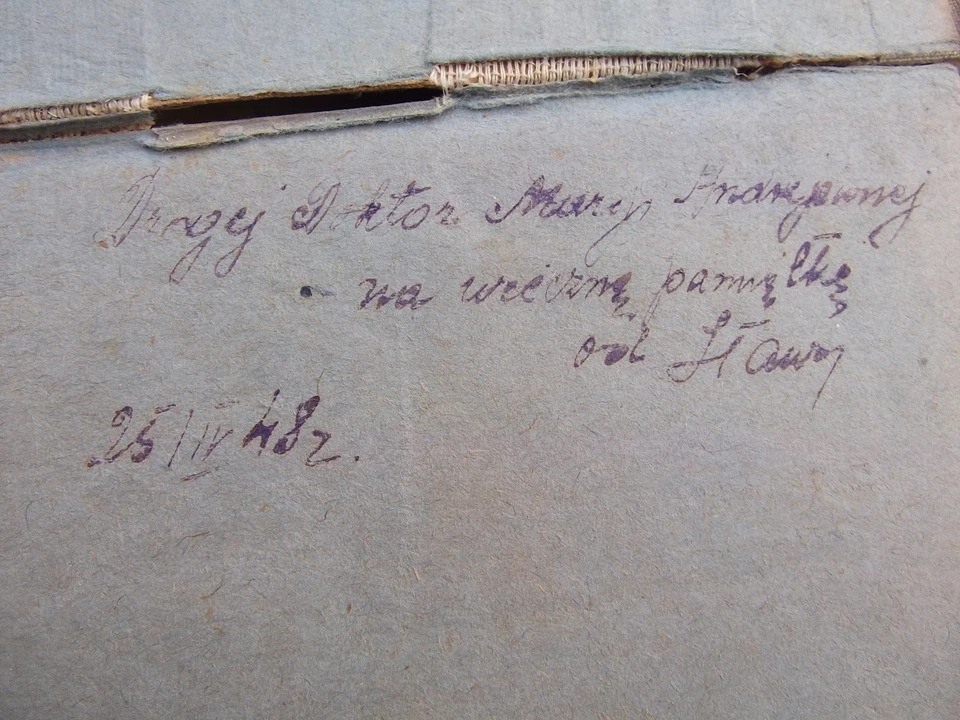 Drogej Doktor Maryi Andrejewnej
na wieczną pamiątkę
od Sławy
25/IV 48 r.